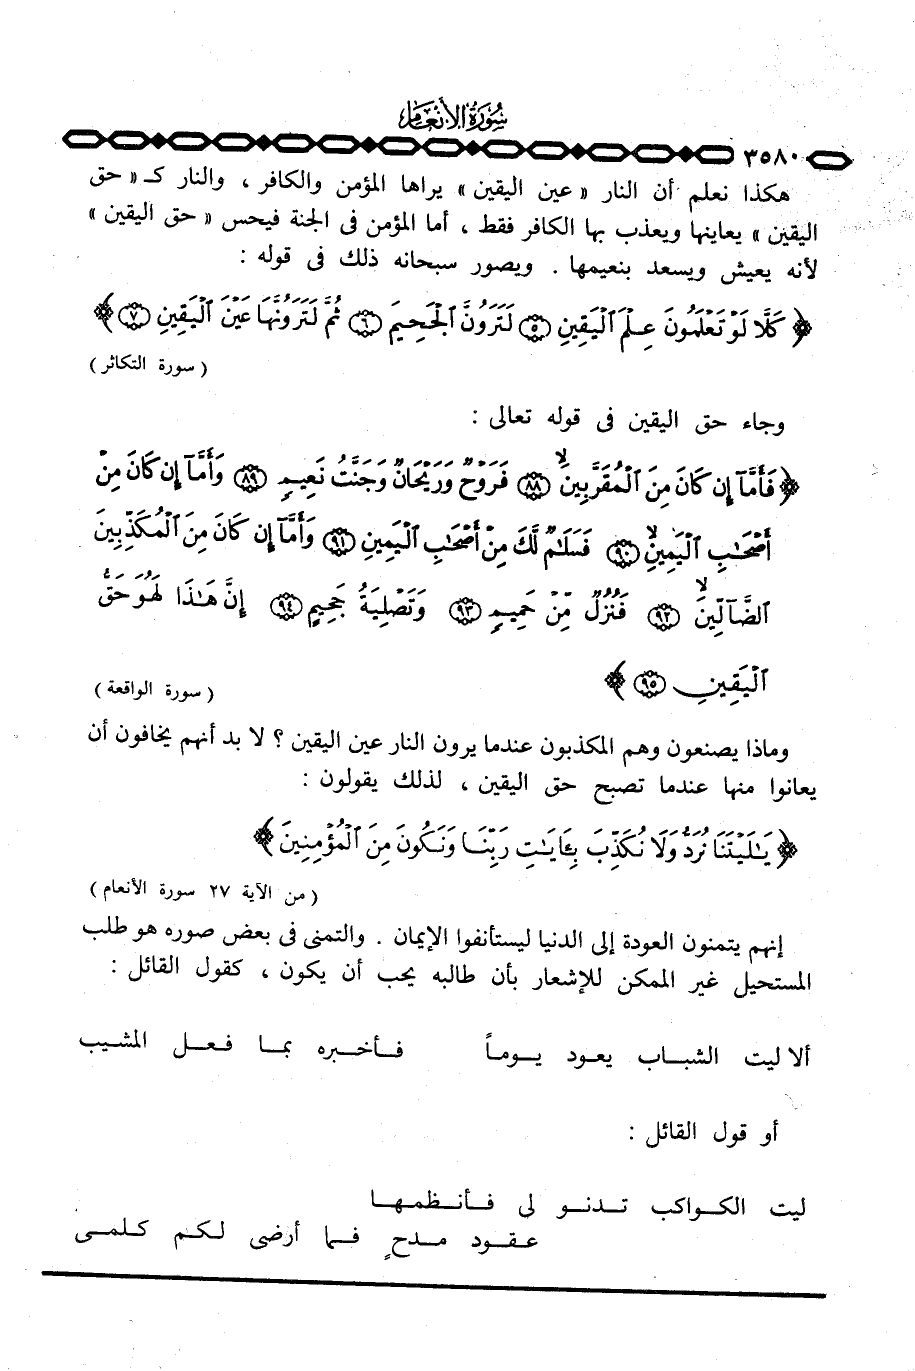 سورة الأنعام
٣٥٨٠
هكذا نعلم أن النار « عين اليقين » يراها المؤمن والكافر ، والنار كـ « حق
اليقين » يعاينها ويعذب بها الكافر فقط ، أما المؤمن فى الجنة فيحس « حق اليقين »
لأنه يعيش ويسعد بنعيمها . ويصور سبحانه ذلك فى قوله :
﴿ كَلَّا لَوْ تَعْلَمُونَ عِلْمَ ٱلْيَقِينِ ۝٥ لَتَرَوُنَّ ٱلْجَحِيمَ ۝٦ ثُمَّ لَتَرَوُنَّهَا عَيْنَ ٱلْيَقِينِ ۝٧ ﴾
( سورة التكاثر )
وجاء حق اليقين فى قوله تعالى :
﴿ فَأَمَّآ إِن كَانَ مِنَ ٱلْمُقَرَّبِينَۙ ۝٨٨ فَرَوْحٌ وَرَيْحَانٌ وَجَنَّتُ نَعِيمٍ ۝٨٩ وَأَمَّآ إِن كَانَ مِنْ
أَصْحَٰبِ ٱلْيَمِينِۙ ۝٩٠ فَسَلَٰمٌ لَّكَ مِنْ أَصْحَٰبِ ٱلْيَمِينِ ۝٩١ وَأَمَّآ إِن كَانَ مِنَ ٱلْمُكَذِّبِينَ
ٱلضَّآلِّينَۙ ۝٩٢ فَنُزُلٌ مِّنْ حَمِيمٍ ۝٩٣ وَتَصْلِيَةُ جَحِيمٍ ۝٩٤ إِنَّ هَٰذَا لَهُوَ حَقُّ
ٱلْيَقِينِ ۝٩٥ ﴾
( سورة الواقعة )
وماذا يصنعون وهم المكذبون عندما يرون النار عين اليقين ؟ لا بد أنهم يخافون أن
يعانوا منها عندما تصبح حق اليقين ، لذلك يقولون :
﴿ يَٰلَيْتَنَا نُرَدُّ وَلَا نُكَذِّبَ بِـَٔايَٰتِ رَبِّنَا وَنَكُونَ مِنَ ٱلْمُؤْمِنِينَ ﴾
( من الآية ٢٧ سورة الأنعام )
إنهم يتمنون العودة إلى الدنيا ليستأنفوا الإيمان . والتمنى فى بعض صوره هو طلب
المستحيل غير الممكن للإشعار بأن طالبه يحب أن يكون ، كقول القائل :
ألا ليت الشباب يعود يوماً فأخبره بما فعل المشيب
أو قول القائل :
ليت الكواكب تدنو لى فأنظمها
عقود مدحٍ فما أرضى لكم كلمى